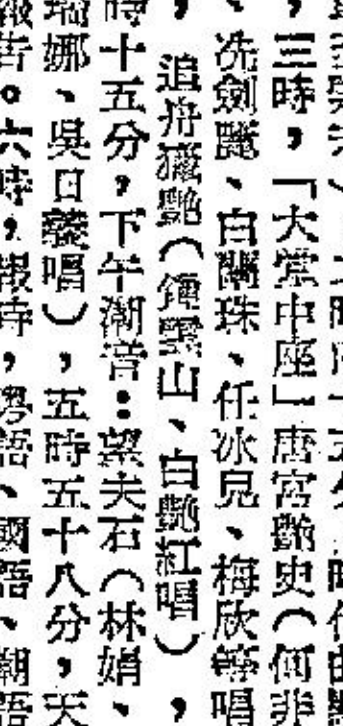 ，三時，「大堂中座」唐宮艷史（何非
、冼劍麗、白蘭珠、任冰兒、梅欣等唱
，追舟獵艷（鍾雲山、白艷紅唱），
時十五分，下午潮音：望夫石（林娟、
瑞娜、吳日發唱），五時五十八分，天
報告。六時，報時，粵語、國語、潮語